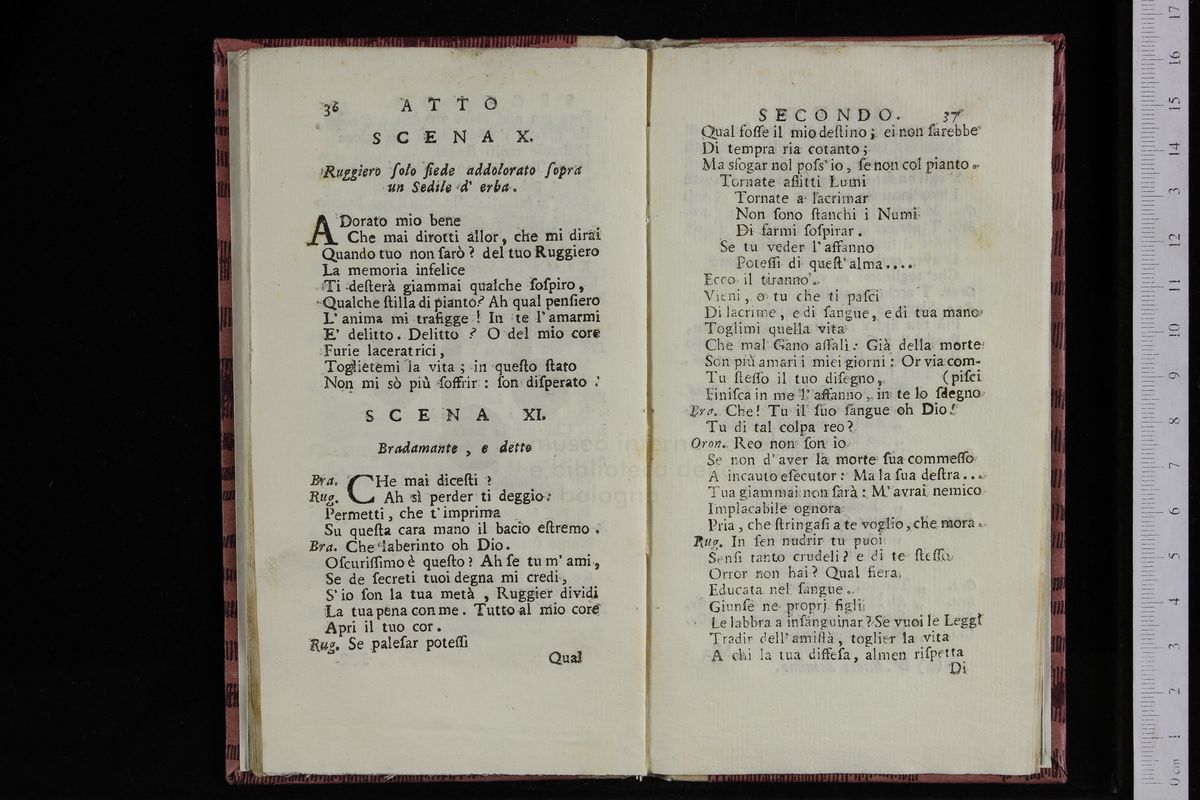 36 ATTO
SCENA X.
Ruggiero ſolo ſiede addolorato ſopra
un Sedile d' erba.
ADorato mio bene
Che mai dirotti allor, che mi dirai
Quando tuo non ſarò? del tuo Ruggiero
La memoria infelice
Ti deſterà giammai qualche ſoſpiro,
Qualche ſtilla di pianto? Ah qual penſiero
L' anima mi trafigge! In te l' amarmi
E' delitto. Delitto? O del mio core
Furie laceratrici,
Toglietemi la vita; in queſto ſtato
Non mi sò più ſoffrir: ſon diſperato.
SCENA XI.
Bradamante, e detto
Bra. CHe mai diceſti?
Rug. Ah sì perder ti deggio:
Permetti, che t' imprima
Su queſta cara mano il bacio eſtremo.
Bra. Che laberinto oh Dio.
Oſcuriſſimo è queſto? Ah ſe tu m' ami,
Se de ſecreti tuoi degna mi credi,
S' io ſon la tua metà, Ruggier dividi
La tua pena con me. Tutto al mio core
Apri il tuo cor.
Rug. Se paleſar poteſſi
Qual
SECONDO. 37
Qual foſſe il mio deſtino; ei non ſarebbe
Di tempra ria cotanto;
Ma sfogar nol poſs' io, ſe non col pianto.
Tornate afflitti Lumi
Tornate a lacrimar
Non ſono ſtanchi i Numi
Di farmi ſoſpirar.
Se tu veder l' affanno
Poteſſi di queſt' alma....
Ecco il tiranno.
Vieni, o tu che ti paſci
Di lacrime, e di ſangue, e di tua mano
Toglimi quella vita
Che mal Gano aſſalì: Già della morte
Son più amari i miei giorni: Or via com-
Tu ſteſſo il tuo diſegno, (piſci
Finiſca in me l' affanno, in te lo ſdegno
Bra. Che! Tu il ſuo ſangue oh Dio!
Tu di tal colpa reo?
Oron. Reo non ſon io
Se non d' aver la morte ſua commeſſo
A incauto eſecutor: Ma la ſua deſtra...
Tua giammai non ſarà: M' avrai nemico
Implacabile ognora
Pria, che ſtringaſi a te voglio, che mora.
Rug. In ſen nudrir tu puoi
Senſi tanto crudeli? e di te ſteſſo
Orror non hai? Qual fiera,
Educata nel ſangue.
Giunſe ne proprj figli
Le labbra a inſanguinar? Se vuoi le Leggi
Tradir dell' amiſtà, toglier la vita
A chi la tua diffeſa, almen riſpetta
Di
museo inter
e biblioteca de
bologna
0 cm 1 2 3 4 5 6 7 8 9 10 11 12 13 14 15 16 17